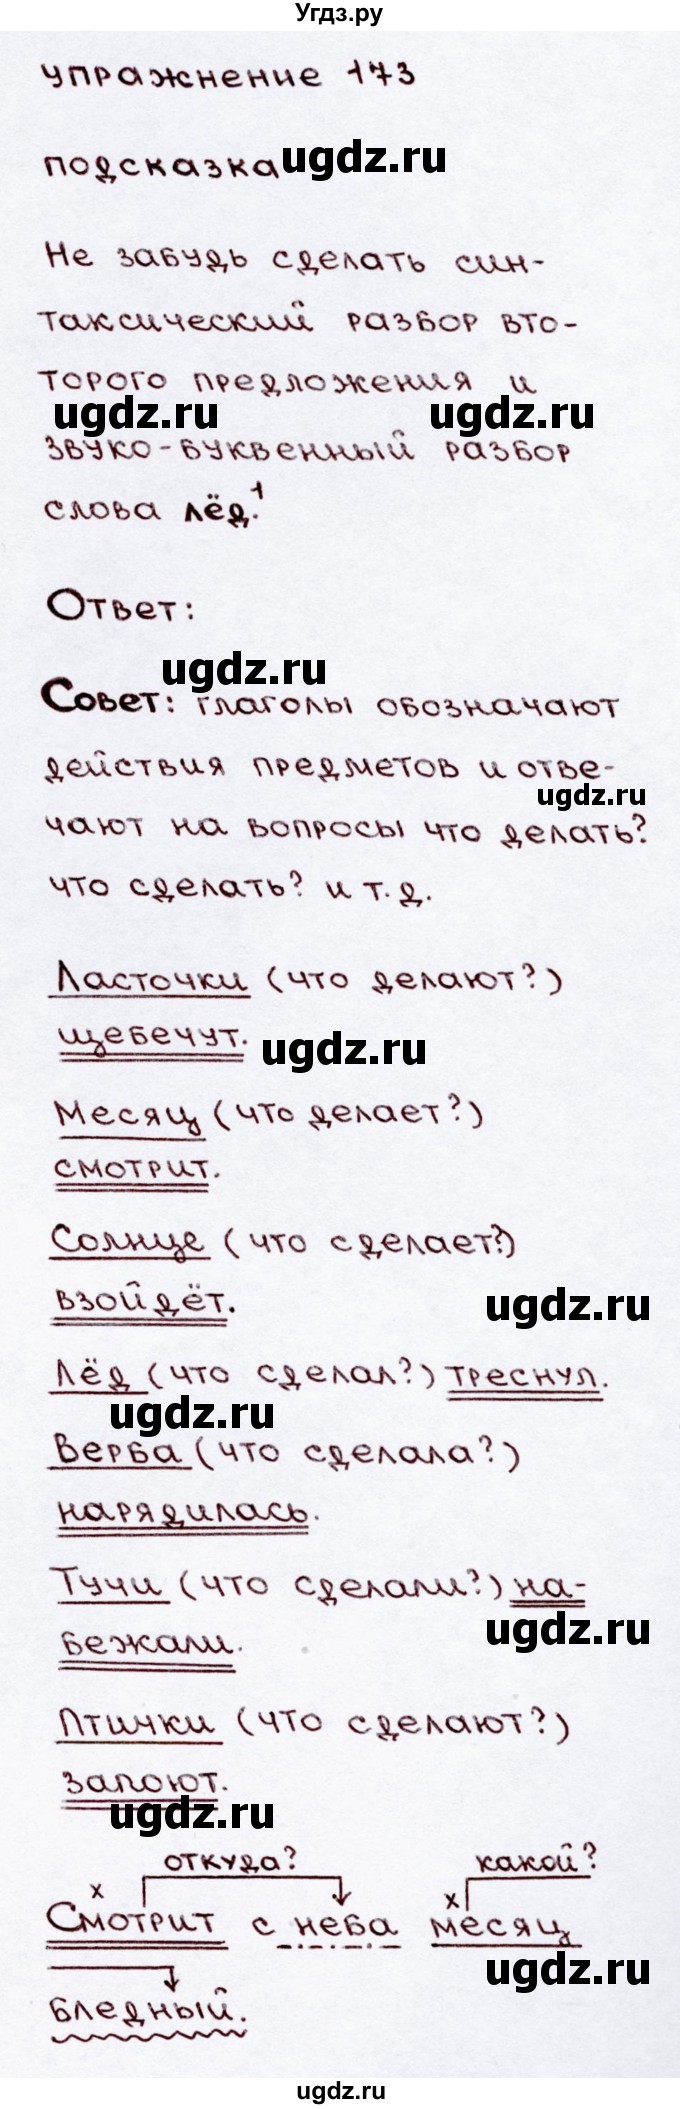 Угдз.ру
упражнение 173
подсказка ugdz.ru
Не забудь сделать син-
таксический разбор вто-
торого предложения и
ugdz.ru ugdz.ru
звуко-буквенный разбор
слова лёд.¹
Ответ:
ugdz.ru
Совет: глаголы обозначают
действия предметов и отве-
ugdz.ru
чают на вопросы что делать?
что сделать? и т.д.
Ласточки (что делают?)
щебечут. ugdz.ru
Месяц (что делает?)
смотрит.
Солнце (что сделает?)
взойдёт. ugdz.ru
Лёд (что сделал?) треснул.
ugdz.ru
Верба (что сделала?)
нарядилась.
Тучи (что сделали?) на-
ugdz.ru
бежали.
Птички (что сделают?)
запоют.
ugdz.ru
откуда? какой?
х х
Смотрит с неба месяц
ugdz.ru
бледный.
ugdz.ru